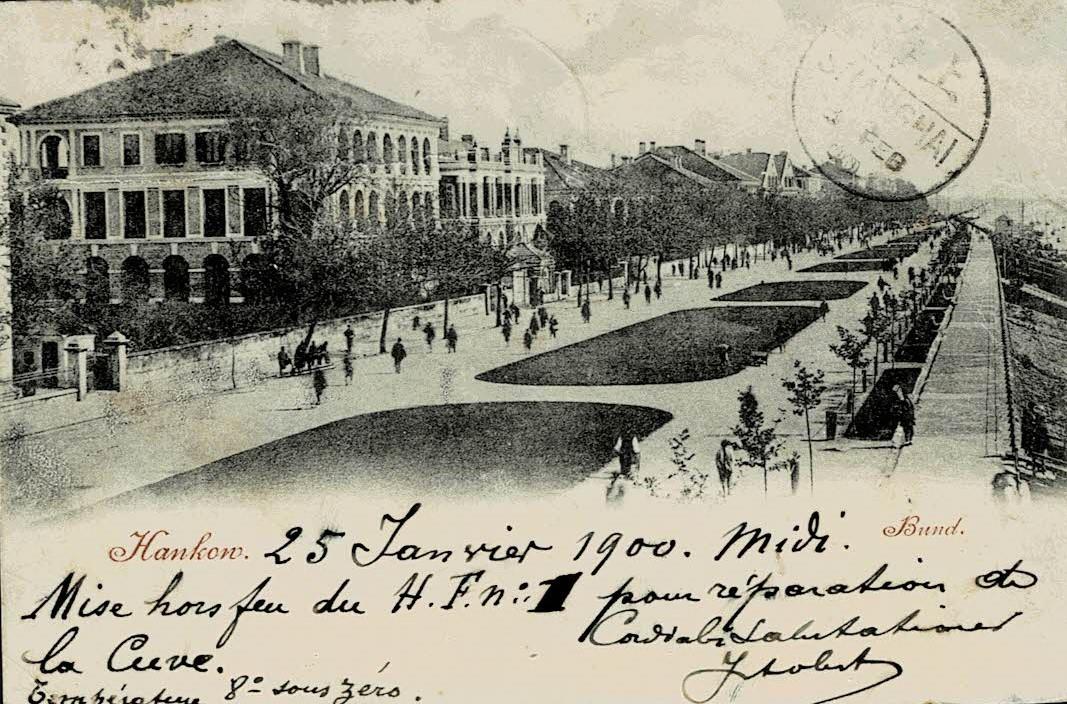 SHANGHAI
FEB
Hankow. 25 Janvier 1900. Midi. Bund.
Mise hors feu du H.F. nº 1 pour réparation de
la Cuve. Cordiales salutations
Température 8° sous zéro.